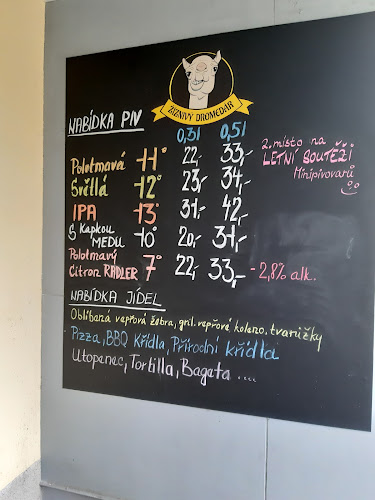 ŽÍZNIVÝ DROMEDÁR
NABÍDKA PIV
0,3l 0,5l
Polotmavá 11° 22,- 33,-
Světlá 12° 23,- 34,-
IPA 13° 31,- 42,-
S Kapkou MEDU 10° 20,- 31,-
Polotmavý
Citron RADLER 7° 22,- 33,- - 2,8% alk.
2. místo na
LETNÍ SOUTĚŽI
Minipivovarů
NABÍDKA JÍDEL
Oblíbaná vepřová žebra, gril. vepřové koleno, tvarůžky
Pizza, BBQ Křídla, Přírodní křídla
Utopenec, Tortilla, Bageta ....